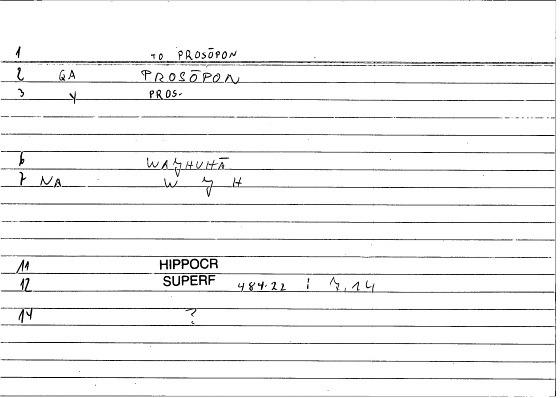 1 TO PROSŌPON
2 GA PROSŌPON
3 Y PROS.
6 WAJHUHĀ
7 NA W J H
11 HIPPOCR
12 SUPERF 484.22 i 7,14
14 ?